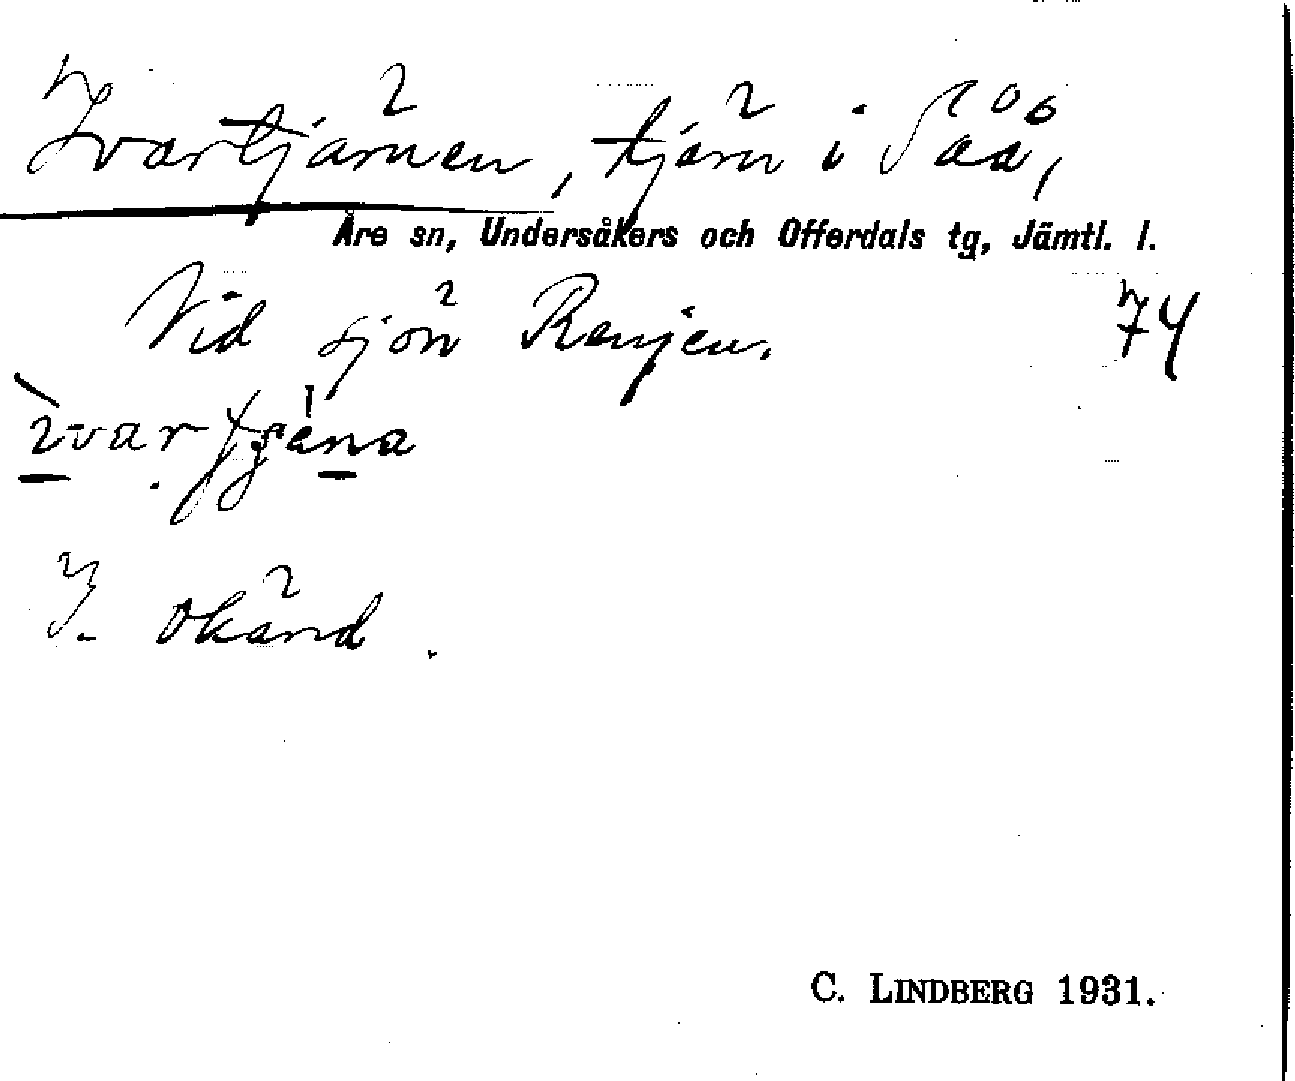 Ivartjärnen, tjärn i Såå,
Åre sn, Undersåkers och Offerdals tg, Jämtl. l.
Vid sjön Renjen. 74
I. okänd.
C. LINDBERG 1931.